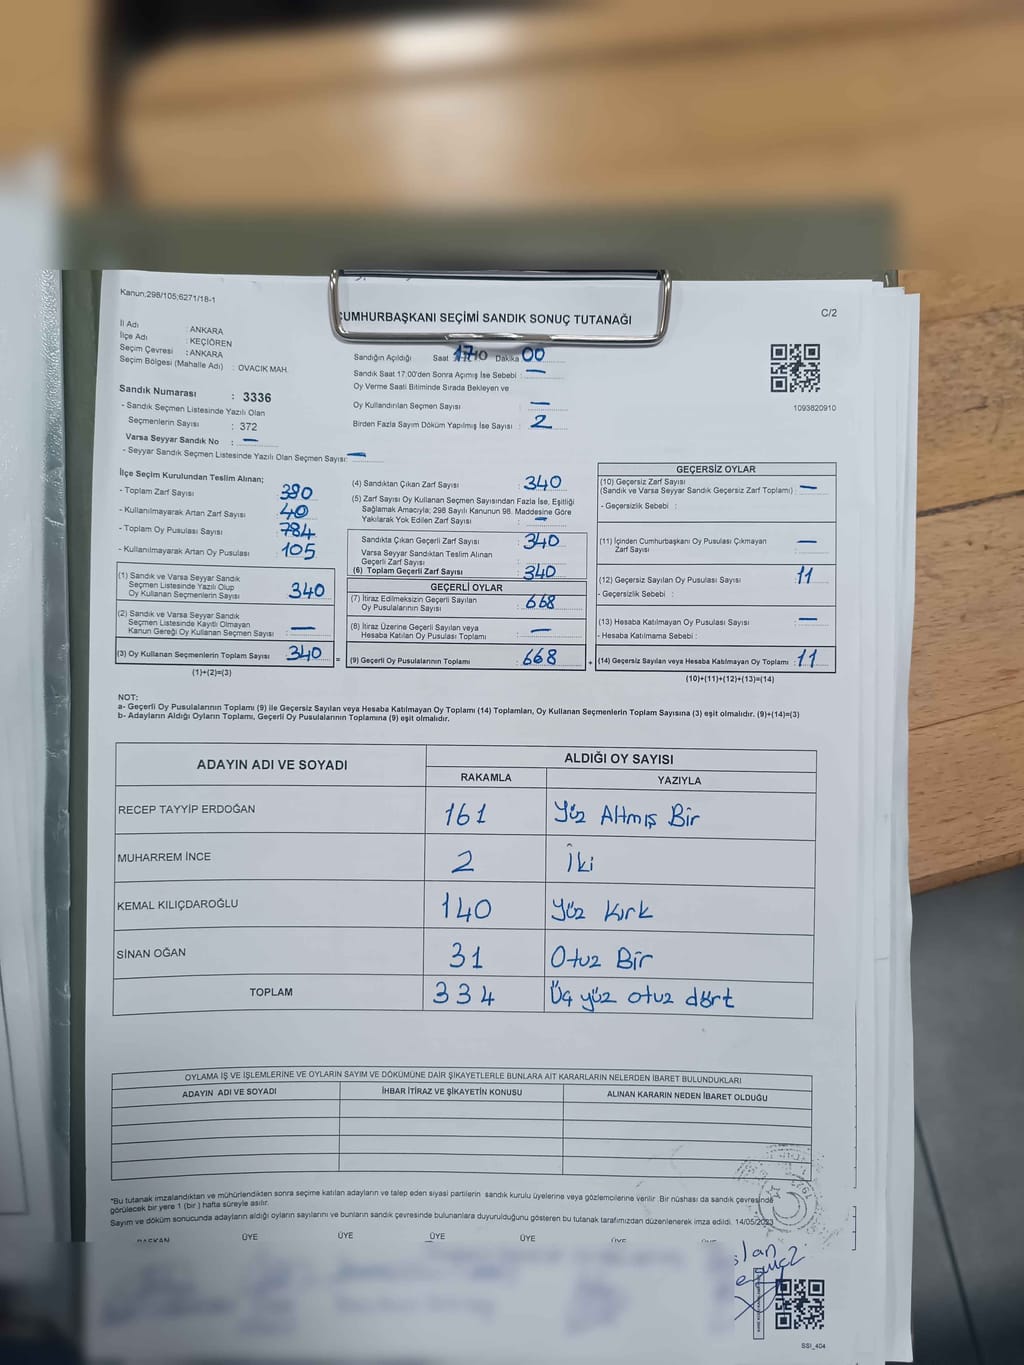 Kanun:298/105;6271/18-1
CUMHURBAŞKANI SEÇİMİ SANDIK SONUÇ TUTANAĞI
C/2
İl Adı : ANKARA
İlçe Adı : KEÇİÖREN
Seçim Çevresi : ANKARA
Seçim Bölgesi (Mahalle Adı) : OVACIK MAH.
Sandık Numarası : 3336
- Sandık Seçmen Listesinde Yazılı Olan
Seçmenlerin Sayısı : 372
Varsa Seyyar Sandık No : —
- Seyyar Sandık Seçmen Listesinde Yazılı Olan Seçmen Sayısı: —
Sandığın Açıldığı Saat Dakika 00
Sandık Saat 17:00'den Sonra Açımış İse Sebebi : —
Oy Verme Saati Bitiminde Sırada Bekleyen ve
Oy Kullandırılan Seçmen Sayısı : —
Birden Fazla Sayım Döküm Yapılmış İse Sayısı : 2
1093820910
İlçe Seçim Kurulundan Teslim Alınan;
- Toplam Zarf Sayısı : 390
- Kullanılmayarak Artan Zarf Sayısı : 40
- Toplam Oy Pusulası Sayısı : 784
- Kullanılmayarak Artan Oy Pusulası : 105
(1) Sandık ve Varsa Seyyar Sandık
Seçmen Listesinde Yazılı Olup
Oy Kullanan Seçmenlerin Sayısı : 340
(2) Sandık ve Varsa Seyyar Sandık
Seçmen Listesinde Kayıtlı Olmayan
Kanun Gereği Oy Kullanan Seçmen Sayısı : —
(3) Oy Kullanan Seçmenlerin Toplam Sayısı : 340 =
(1)+(2)=(3)
(4) Sandıktan Çıkan Zarf Sayısı : 340
(5) Zarf Sayısı Oy Kullanan Seçmen Sayısından Fazla İse, Eşitliği
Sağlamak Amacıyla; 298 Sayılı Kanunun 98. Maddesine Göre
Yakılarak Yok Edilen Zarf Sayısı : —
Sandıkta Çıkan Geçerli Zarf Sayısı : 340
Varsa Seyyar Sandıktan Teslim Alınan
Geçerli Zarf Sayısı :
(6) Toplam Geçerli Zarf Sayısı : 340
GEÇERLİ OYLAR
(7) İtiraz Edilmeksizin Geçerli Sayılan
Oy Pusulalarının Sayısı : 668
(8) İtiraz Üzerine Geçerli Sayılan veya
Hesaba Katılan Oy Pusulası Toplamı : —
(9) Geçerli Oy Pusulalarının Toplamı : 668 +
GEÇERSİZ OYLAR
(10) Geçersiz Zarf Sayısı
(Sandık ve Varsa Seyyar Sandık Geçersiz Zarf Toplamı) : —
- Geçersizlik Sebebi :
(11) İçinden Cumhurbaşkanı Oy Pusulası Çıkmayan
Zarf Sayısı : —
(12) Geçersiz Sayılan Oy Pusulası Sayısı : 11
- Geçersizlik Sebebi :
(13) Hesaba Katılmayan Oy Pusulası Sayısı : —
- Hesaba Katılmama Sebebi :
(14) Geçersiz Sayılan veya Hesaba Katılmayan Oy Toplamı : 11
(10)+(11)+(12)+(13)=(14)
NOT:
a- Geçerli Oy Pusulalarının Toplamı (9) ile Geçersiz Sayılan veya Hesaba Katılmayan Oy Toplamı (14) Toplamları, Oy Kullanan Seçmenlerin Toplam Sayısına (3) eşit olmalıdır. (9)+(14)=(3)
b- Adayların Aldığı Oyların Toplamı, Geçerli Oy Pusulalarının Toplamına (9) eşit olmalıdır.
ADAYIN ADI VE SOYADI
ALDIĞI OY SAYISI
RAKAMLA YAZIYLA
RECEP TAYYİP ERDOĞAN 161 Yüz Altmış Bir
MUHARREM İNCE 2 İki
KEMAL KILIÇDAROĞLU 140 Yüz Kırk
SİNAN OĞAN 31 Otuz Bir
TOPLAM 334 Üç yüz otuz dört
OYLAMA İŞ VE İŞLEMLERİNE VE OYLARIN SAYIM VE DÖKÜMÜNE DAİR ŞİKAYETLERLE BUNLARA AİT KARARLARIN NELERDEN İBARET BULUNDUKLARI
ADAYIN ADI VE SOYADI İHBAR İTİRAZ VE ŞİKAYETİN KONUSU ALINAN KARARIN NEDEN İBARET OLDUĞU
*Bu tutanak imzalandıktan ve mühürlendikten sonra seçime katılan adayların ve talep eden siyasi partilerin sandık kurulu üyelerine veya gözlemcilerine verilir. Bir nüshası da sandık çevresinde
görülecek bir yere 1 (bir) hafta süreyle asılır.
Sayım ve döküm sonucunda adayların aldığı oyların sayılarını ve bunların sandık çevresinde bulunanlara duyurulduğunu gösteren bu tutanak tarafımızdan düzenlenerek imza edildi. 14/05/2023
BAŞKAN ÜYE ÜYE ÜYE ÜYE ÜYE
SSI_404